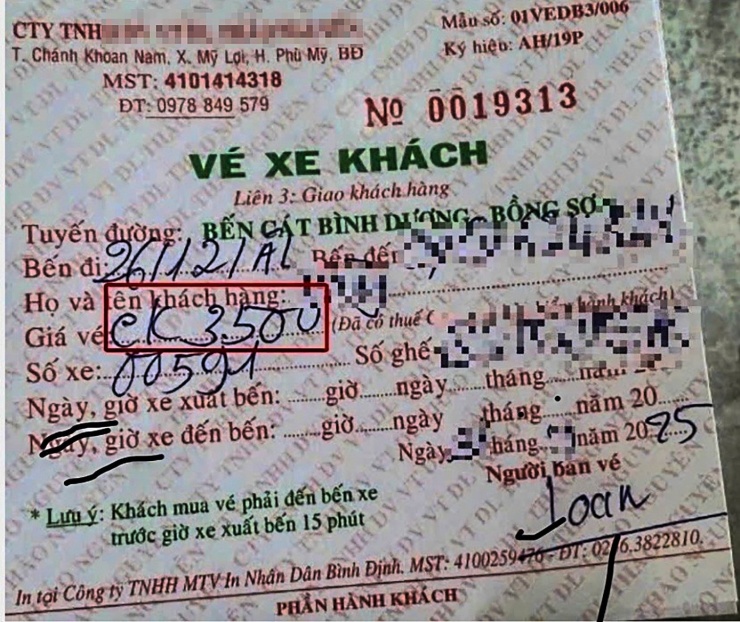 CTY TNH
T. Chánh Khoan Nam, X. Mỹ Lợi, H. Phù Mỹ. BĐ
MST: 4101414318
ĐT: 0978 849 579
Mẫu số: 01VEDB3/006
Ký hiệu: AH/19P
Nº 0019313
VÉ XE KHÁCH
Liên 3: Giao khách hàng
Tuyến đường: BẾN CÁT BÌNH DƯƠNG - BỒNG SƠN
Bến đi: 26/12/AL Bến đến
Họ và tên khách hàng:
Giá vé: CK 3500 (Đã có thuế hành khách)
Số xe: 00591 Số ghế
Ngày, giờ xe xuất bến: ......giờ ......ngày ......tháng ......năm 20
Ngày, giờ xe đến bến: ......giờ ......ngày ......tháng ......năm 20
Ngày tháng năm 2025
Người bán vé
Loan
* Lưu ý: Khách mua vé phải đến bến xe
trước giờ xe xuất bến 15 phút
In tại Công ty TNHH MTV In Nhân Dân Bình Định. MST: 4100259476 - ĐT: 0256.3822810.
PHẦN HÀNH KHÁCH